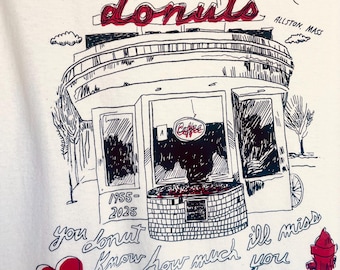 donuts
ALLSTON MASS
Coffee
1955-
2025
you donut ill miss
know how much you